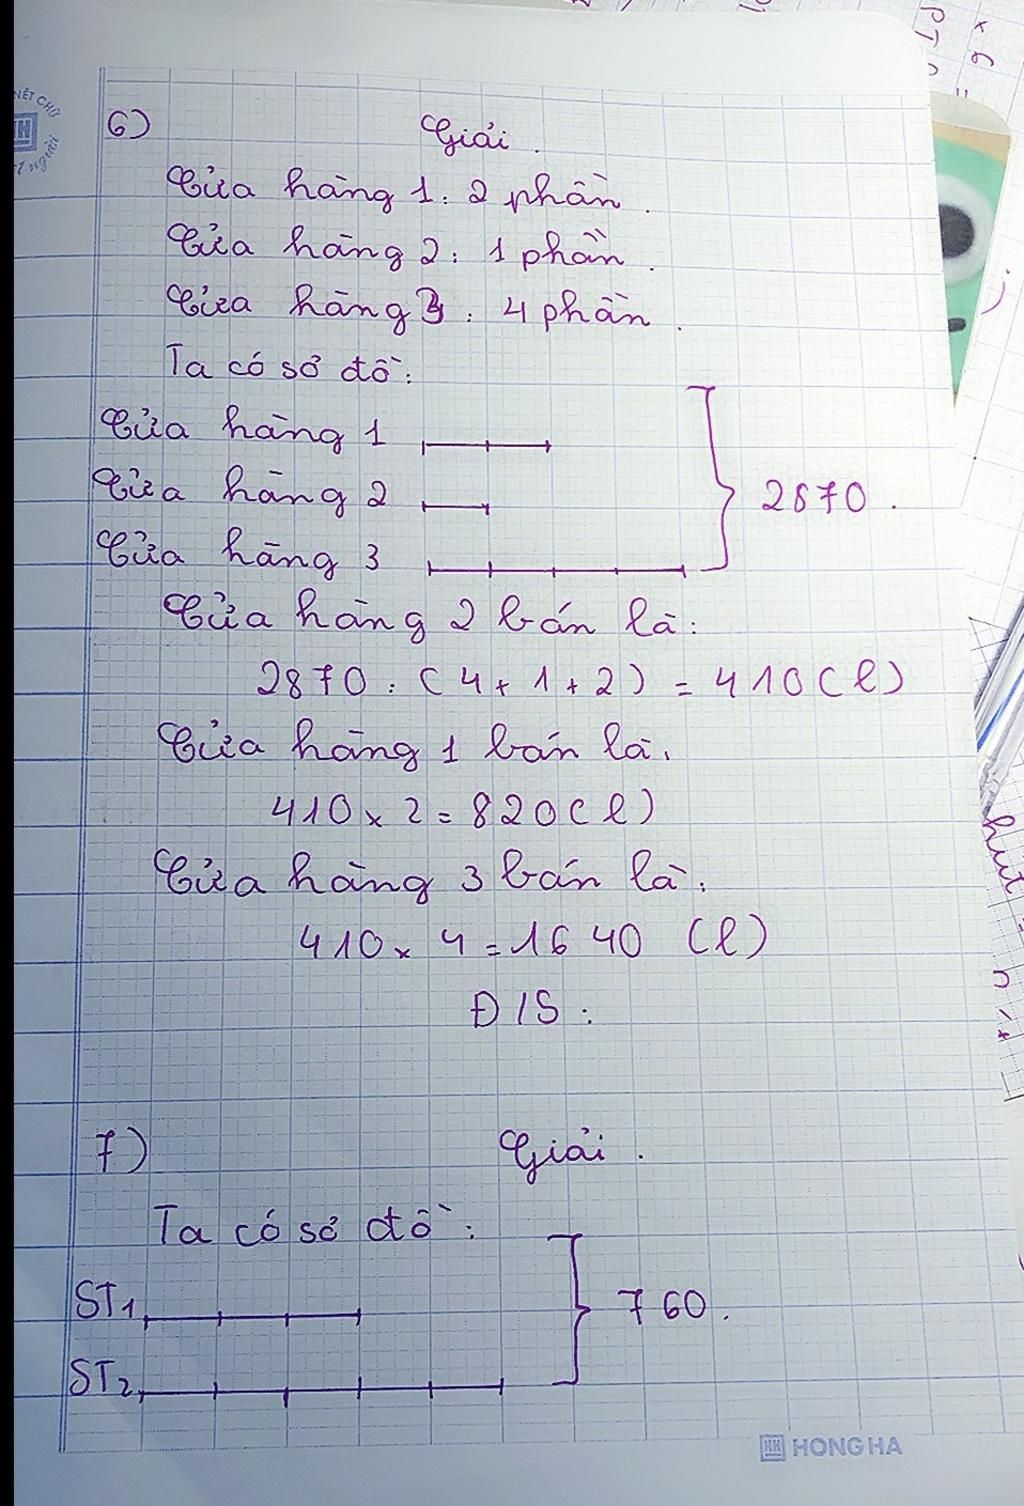 NÉT CHỮ
6) Giải.
Cửa hàng 1: 2 phần.
Cửa hàng 2: 1 phần.
Cửa hàng 3: 4 phần.
Ta có sơ đồ:
Cửa hàng 1
Cửa hàng 2
2870.
Cửa hàng 3
Cửa hàng 2 bán là:
2870 : (4 + 1 + 2) = 410 (l)
Cửa hàng 1 bán là:
410 x 2 = 820 (l)
Cửa hàng 3 bán là:
410 x 4 = 1640 (l)
Đ/S:
7) Giải.
Ta có sơ đồ:
ST1
760.
ST2
HONG HA